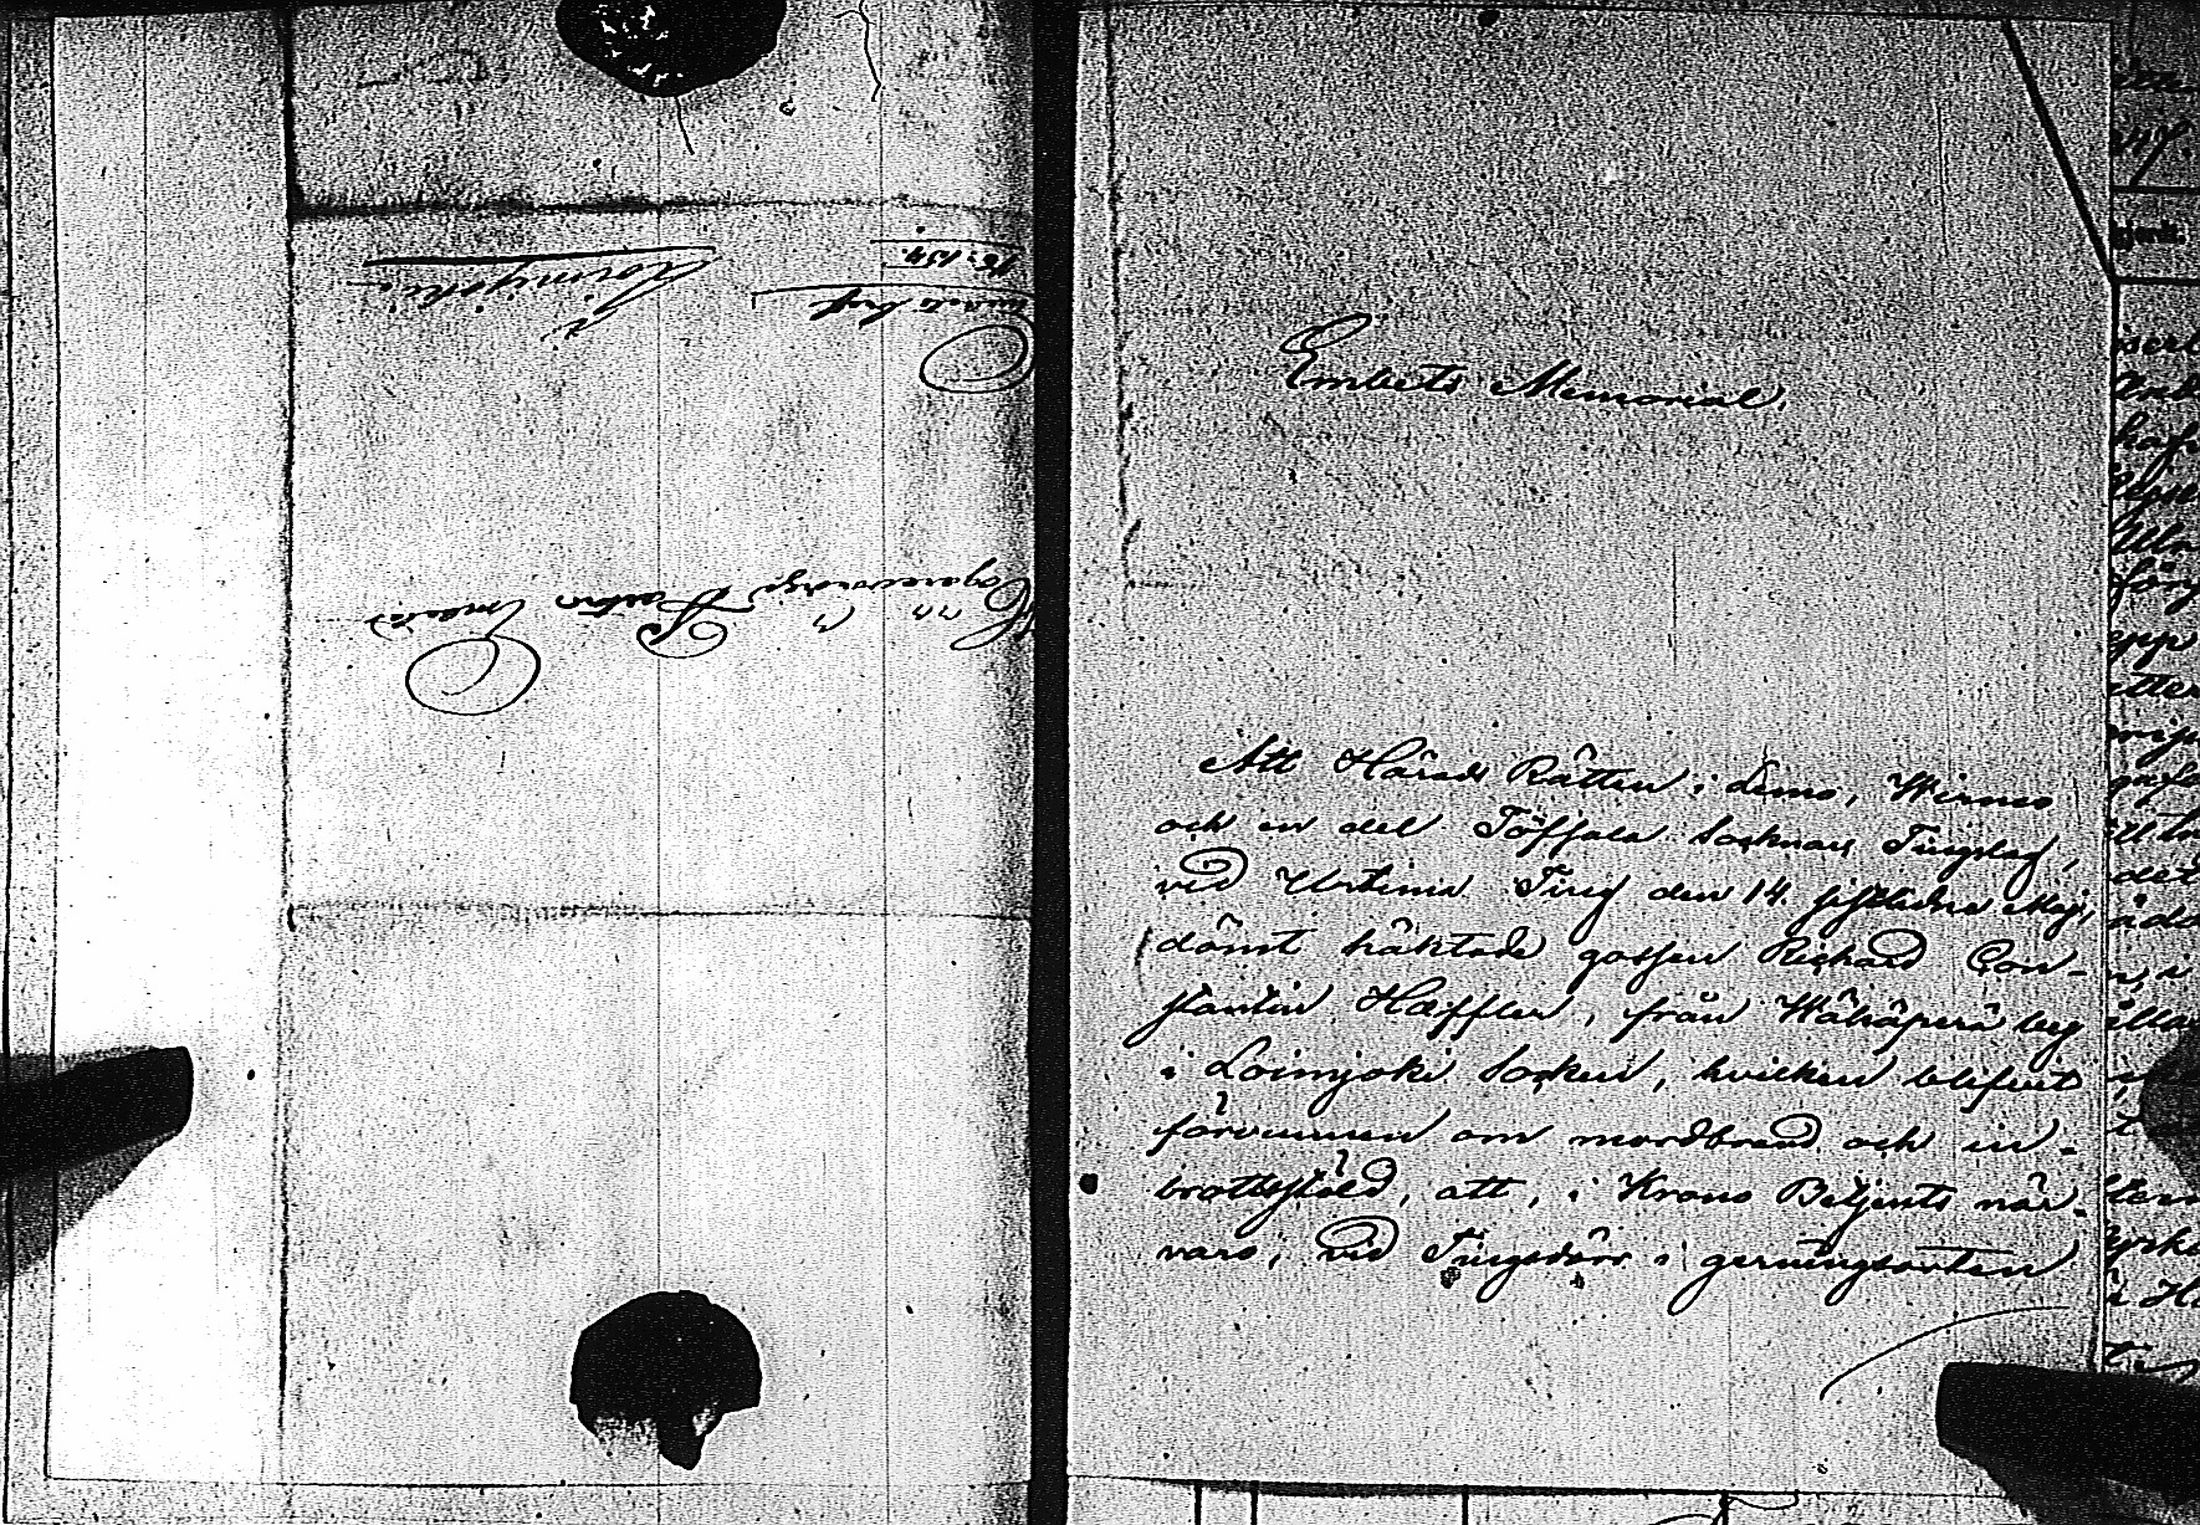 Högärevördige Pastors Embetet
i
Loimijoki.
Embets bref
No: 154.
Embets Memorial.
Att Härads Rätten i Lemo, Wirmo
och en del Töffsala Socknars Tingslag,
vid Urtima Ting den 14. sistledne Maj,
dömt häktade gossen Richard Con-
stantin Hæffler, från Wähäperä by
i Loimjoki Socken, hvilken blifvit
förvunnen om mordbrand och in-
brottsstöld, att, i Krono Betjents när-
varo, vid Tingsdörr i gerningsorten